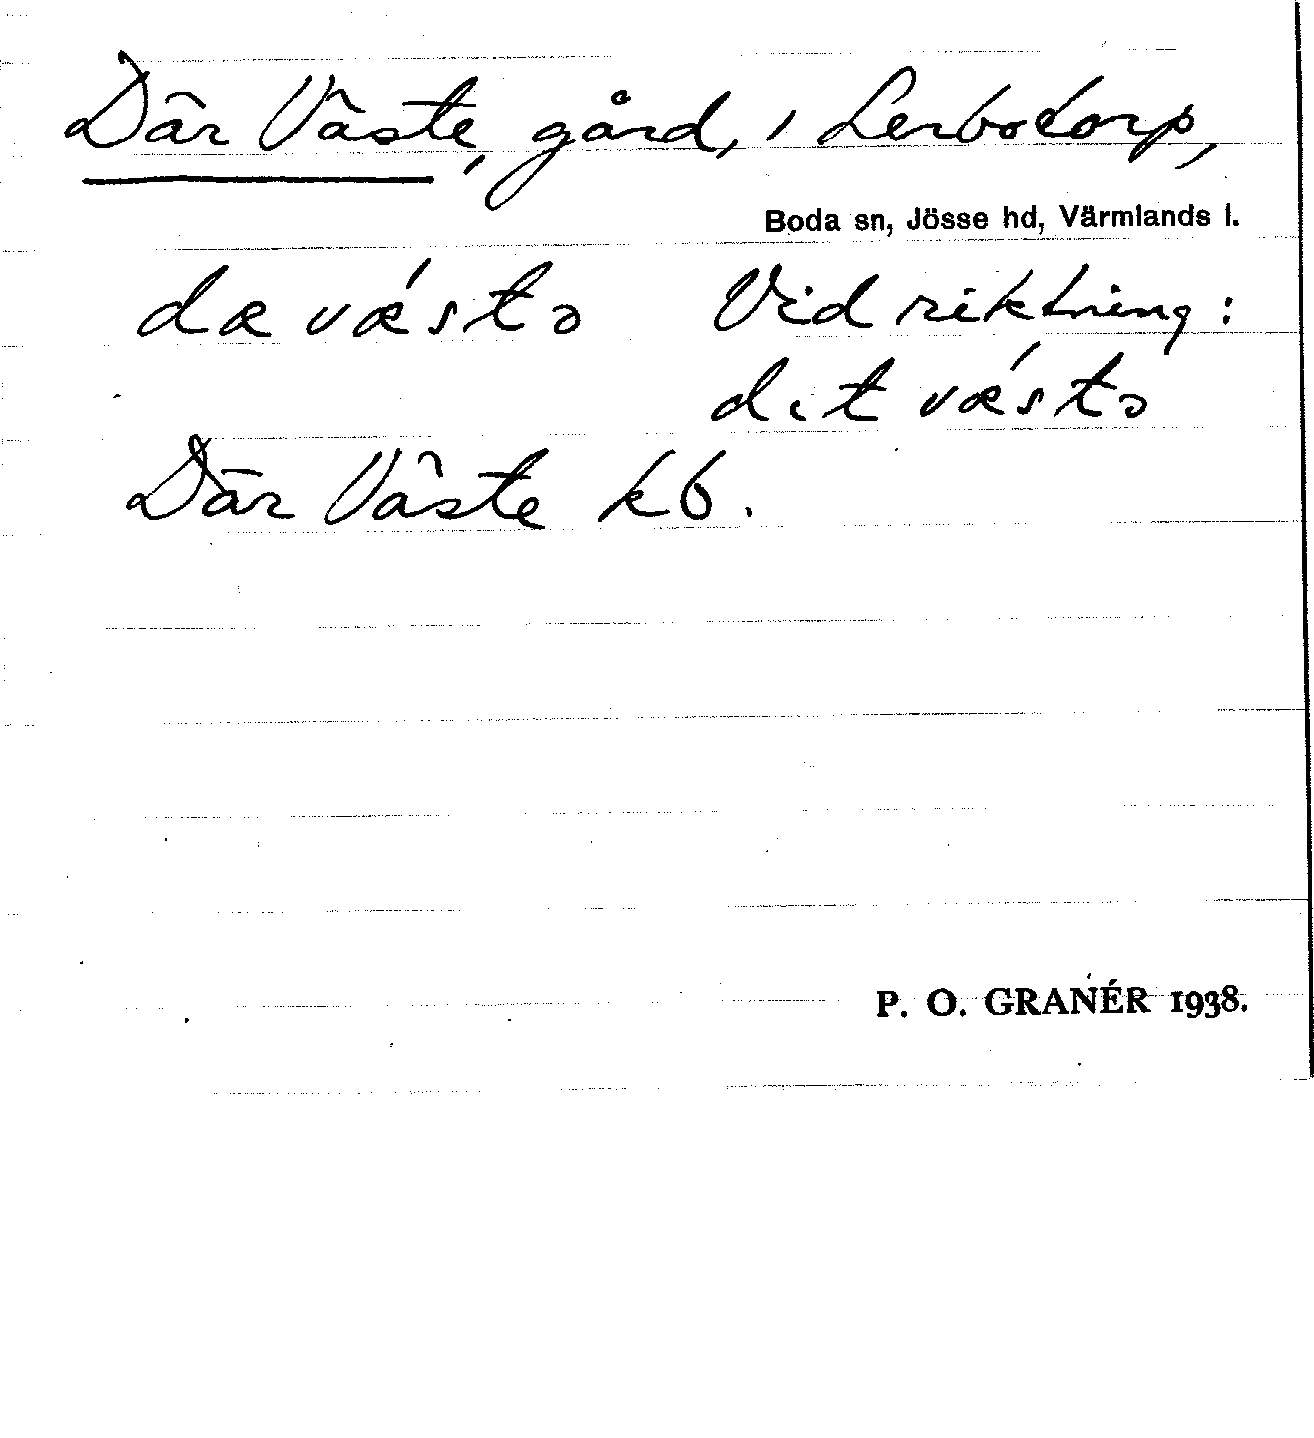 Där Väste, gård, i Lerbotorp,
Boda sn, Jösse hd, Värmlands l.
dæ vǽstə Vid riktning:
dit vǽstə
Där Väste kb.
P. O. GRANÉR 1938.